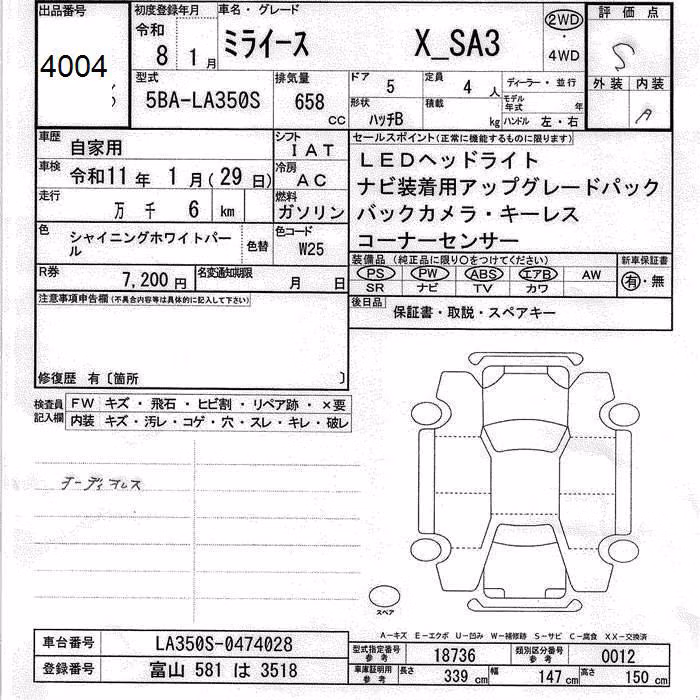 出品番号
4004
初度登録年月
令和
8 1月
車名・グレード
ミライース X_SA3
2WD
・
4WD
評価点
S
外装 内装
A
型式
5BA-LA350S
排気量
658
CC
ドア 5
定員 4 人
形状 ハッチB
積載 kg
ディーラー・並行
モデル年式 年
ハンドル 左・右
車歴
自家用
シフト
IAT
車検
令和11年 1月(29日)
冷房
AC
走行
万 千 6 km
燃料
ガソリン
色
シャイニングホワイトパール
色替
色コード
W25
R券
7,200円
名変通知期限
月 日
セールスポイント(正常に機能するものに限ります)
LEDヘッドライト
ナビ装着用アップグレードパック
バックカメラ・キーレス
コーナーセンサー
装備品(純正品に限り○をつけてください)
PS PW ABS エアB AW
SR ナビ TV カワ
新車保証書
有・無
後日品
保証書・取説・スペアキー
注意事項申告欄(不具合内容等は具体的に記入して下さい)
修復歴 有〔箇所 〕
検査員記入欄
FW キズ・飛石・ヒビ割・リペア跡・×要
内装 キズ・汚レ・コゲ・穴・スレ・キレ・破レ
スペア
A-キズ E-エクボ U-凹み W-補修跡 S-サビ C-腐食 XX-交換済
車台番号
LA350S-0474028
登録番号
富山 581 は 3518
型式指定番号 参考
18736
類別区分番号 参考
0012
車庫証明用 参考
長さ 339 cm
幅 147 cm
高さ 150 cm